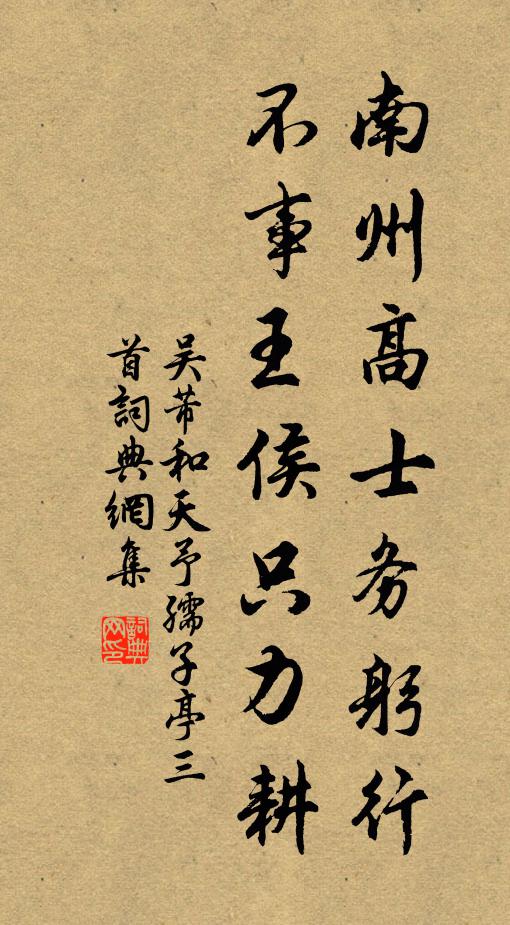 南州高士务躬行
不事王侯只力耕
吴芾和天予孺子亭三
首詞典網集
詞典
网印